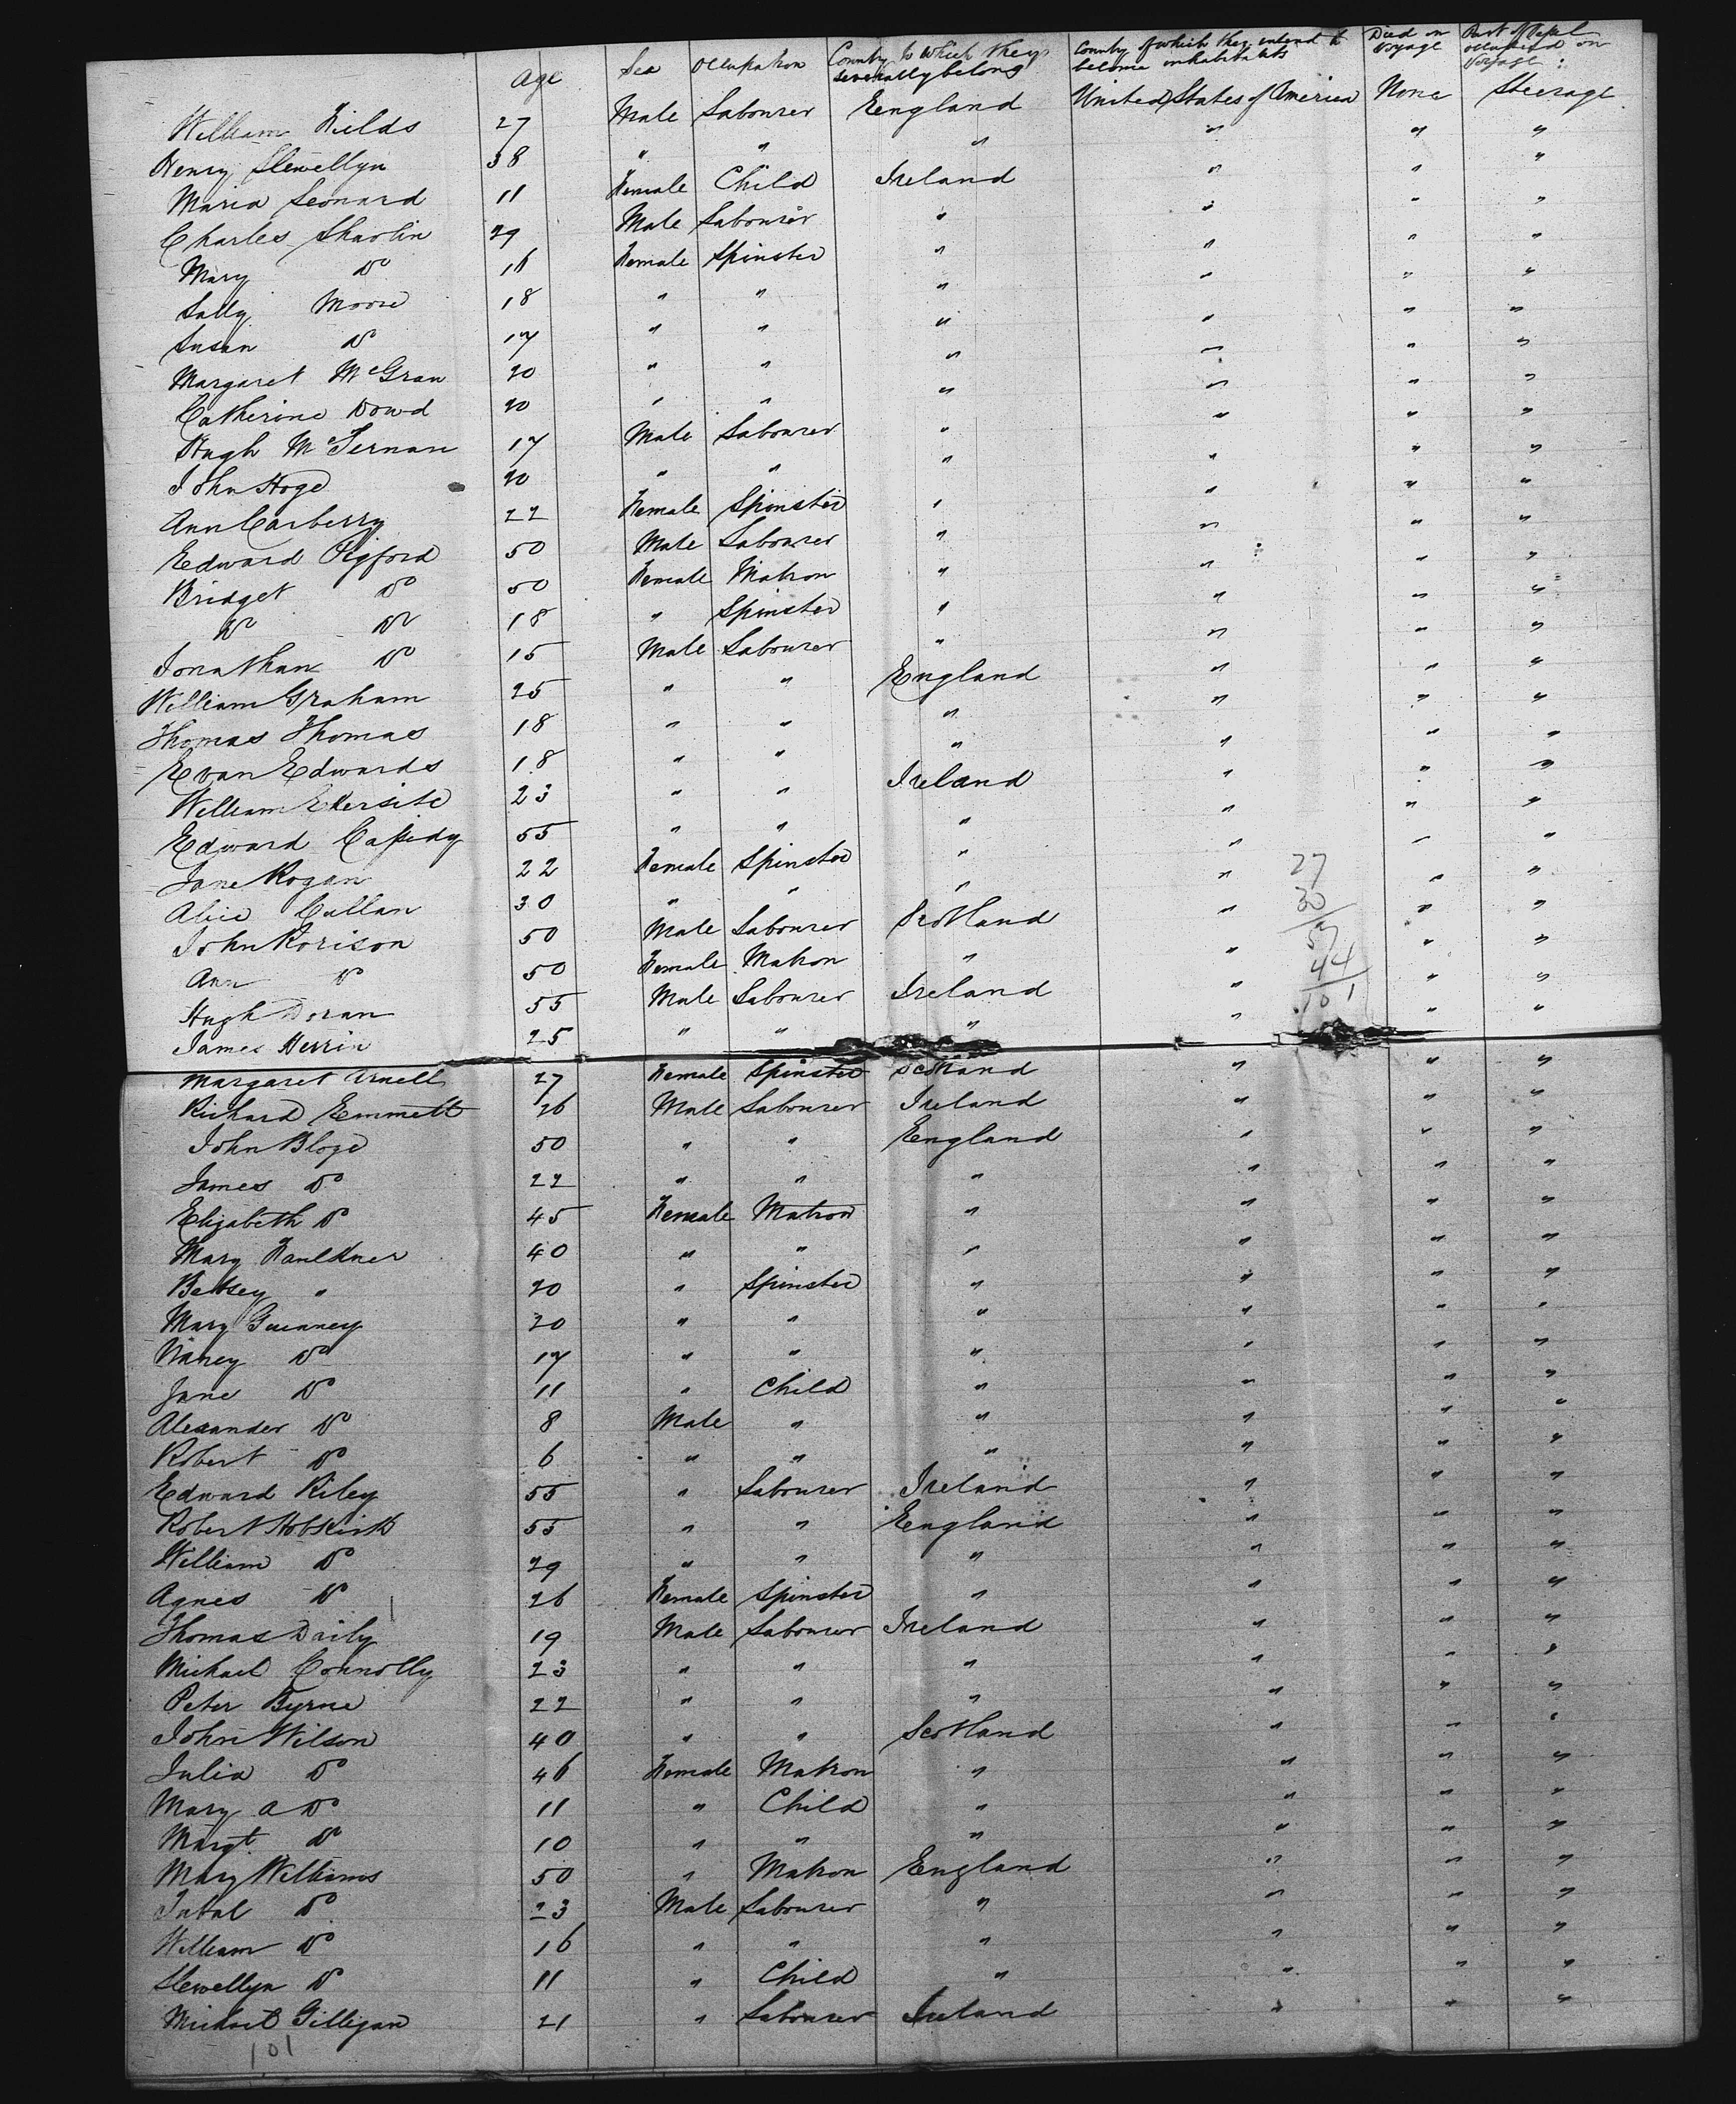 Age Sex Occupation Country to which they severally belong Country of which they intend to become inhabitants Died on Voyage Part of Vessel occupied on Voyage
William Fields 27 Male Labourer England United States of America None Steerage
Henry Llewellyn 38 " " " " " "
Maria Leonard 11 Female Child Ireland " " "
Charles Sharlin 29 Male Labourer " " " "
Mary Do 16 Female Spinster " " " "
Sally Moore 18 " " " " " "
Susan Do 17 " " " " " "
Margaret McGran 20 " " " " " "
Catherine Dowd 20 " " " " " "
Hugh McTernan 17 Male Labourer " " " "
John Hoge 20 " " " " " "
Ann Carberry 22 Female Spinster " " " "
Edward Pigford 50 Male Labourer " " " "
Bridget Do 50 Female Matron " " " "
Do Do 18 " Spinster " " " "
Jonathan Do 15 Male Labourer " " " "
William Graham 25 " " England " " "
Thomas Thomas 18 " " " " " "
Evan Edwards 18 " " " " " "
William 23 " " Ireland " " "
Edward Cassidy 55 " " " " " "
Jane Rogan 22 Female Spinster " " " "
27
Alice Callan 30 " " " " " "
30
John Rorison 50 Male Labourer Scotland " " "
57
Ann Do 50 Female Matron " " " "
44
Hugh Doran 55 Male Labourer Ireland " " "
101
James Herrin 25 " " " " " "
Margaret Arnell 27 Female Spinster Scotland " " "
Richard Emmett 26 Male Labourer Ireland " " "
John Bloge 50 " " England " " "
James Do 22 " " " " " "
Elizabeth Do 45 Female Matron " " " "
Mary Faulkner 40 " " " " " "
Betsey " 20 " Spinster " " " "
Mary Guinney 20 " " " " " "
Nancy Do 17 " " " " " "
Jane Do 11 " Child " " " "
Alexander Do 8 Male " " " " "
Robert Do 6 " " " " " "
Edward Riley 55 " Labourer Ireland " " "
Robert Hobkirk 55 " " England " " "
William Do 29 " " " " " "
Agnes Do 26 Female Spinster " " " "
Thomas Daily 19 Male Labourer Ireland " " "
Michael Connolly 23 " " " " " "
Peter Byrne 22 " " " " " "
John Wilson 40 " " Scotland " " "
Julia Do 46 Female Matron " " " "
Mary A Do 11 " Child " " " "
Margt. Do 10 " " " " " "
Mary Williams 50 " Matron England " " "
Do 23 Male Labourer " " " "
William Do 16 " " " " " "
Llewellyn Do 11 " Child " " " "
Michael Gilligan 21 " Labourer Ireland " " "
101